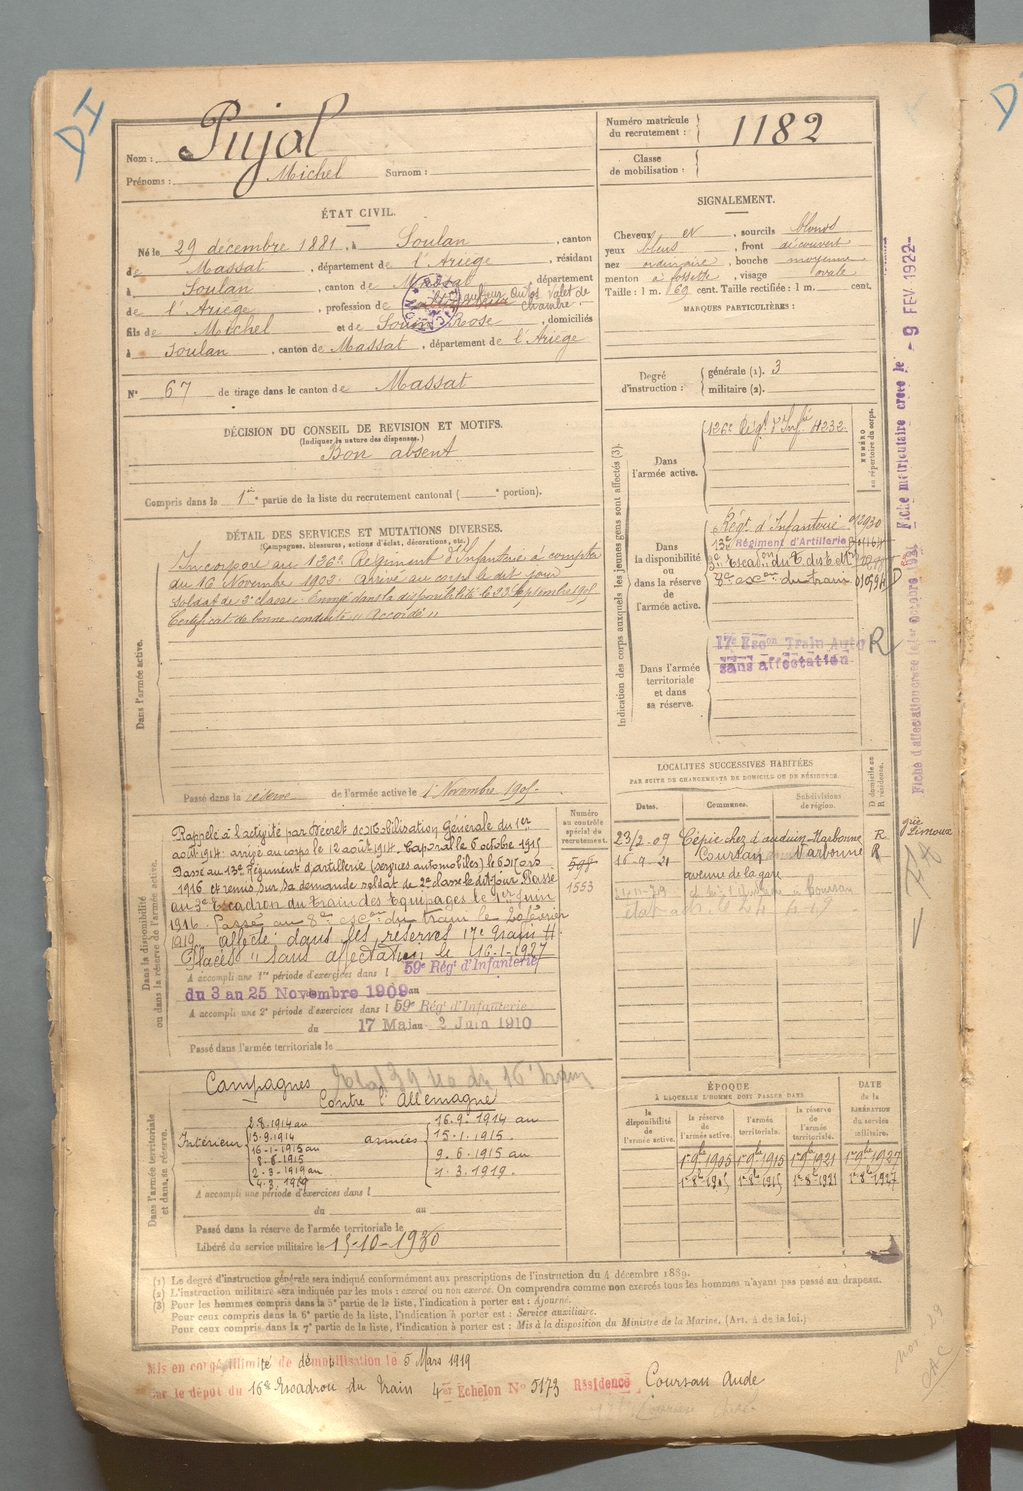 Nom : Pujol
Prénoms : Michel Surnom :
Numéro matricule du recrutement : 1182
Classe de mobilisation :
ÉTAT CIVIL.
Né le 29 décembre 1881, à Soulan, canton
de Massat, département de l'Ariège, résidant
à Soulan, canton de Massat, département
de l'Ariège, profession de Valet de Chambre
fils de Michel et de Rose, domiciliés
à Soulan, canton de Massat, département de l'Ariège
N° 67 de tirage dans le canton de Massat
DÉCISION DU CONSEIL DE REVISION ET MOTIFS.
(Indiquer la nature des dispenses.)
Bon absent
Compris dans la 1re partie de la liste du recrutement cantonal ( e portion).
DÉTAIL DES SERVICES ET MUTATIONS DIVERSES.
(Campagnes, blessures, actions d'éclat, décorations, etc.)
Dans l'armée active.
Incorporé au 126e Régiment d'Infanterie à compter
du 16 Novembre 1902. Arrivé au corps le dit jour
soldat de 2e classe. Envoyé dans la disponibilité le 23 Septembre 1905
Certificat de bonne conduite "Accordé"
Passé dans la réserve de l'armée active le 1 Novembre 1905
SIGNALEMENT.
Cheveux et, sourcils blonds
yeux bleus, front découvert
nez ordinaire, bouche moyenne
menton à fossette, visage ovale
Taille : 1 m. 69 cent. Taille rectifiée : 1 m. cent.
MARQUES PARTICULIÈRES :
Degré d'instruction : générale (1). 3
militaire (2).
Indication des corps auxquels les jeunes gens sont affectés (3).
NUMÉRO au répertoire du corps.
Dans l'armée active.
126e Régt d'Infie 4232
Dans la disponibilité ou dans la réserve de l'armée active.
Régt d'Infanterie
13e Régiment d'Artillerie
3e Escadon du T. des E. Mres
8e escon du train
Dans l'armée territoriale et dans sa réserve.
17e Escon Train Auto R
sans affectation
LOCALITÉS SUCCESSIVES HABITÉES
PAR SUITE DE CHANGEMENTS DE DOMICILE OU DE RÉSIDENCE.
Dates. Communes. Subdivisions de région. Domicile ou Résidence.
23/2-09 Cépie chez d'auduin Narbonne R
16-9-21 Coursan Narbonne R
avenue de la gare
Dans la disponibilité ou dans la réserve de l'armée active.
Numéro au contrôle spécial du recrutement.
598
1553
Rappelé à l'activité par Décret de Mobilisation Générale du 1er
août 1914: arrivé au corps le 12 août 1914. Caporal le 6 octobre 1915
Passé au 13e Régiment d'artillerie (services automobiles) le 6 mars
1916 et remis sur sa demande soldat de 2e classe le dit jour Passé
au 3e Escadron du Train des Equipages le 1er juin
1916. Passé au 8e escon du train le 20 février
1919. affecté dans les réserves 17e Train
Placés "Sans affectation le 16-1-1927
A accompli une 1re période d'exercices dans l 59e Régt d'Infanterie
du 3 au 25 Novembre 1909 au
A accompli une 2e période d'exercices dans l 59e Régt d'Infanterie
du 17 Mai au 2 Juin 1910
Passé dans l'armée territoriale le
Dans l'armée territoriale et dans sa réserve.
Campagnes
Contre l'Allemagne
Intérieur armées
2.8.1914 au
13-9-1914
16-1-1915 au
8-6-1915
2-3-1919 au
4-3.1919
16.9.1914 au
15-1.1915.
9.6-1915 au
1.3.1919.
A accompli une période d'exercices dans l
du au
Passé dans la réserve de l'armée territoriale le
Libéré du service militaire le 15-10-1930
ÉPOQUE
À LAQUELLE L'HOMME DOIT PASSER DANS
la disponibilité de l'armée active.
la réserve de l'armée active.
l'armée territoriale.
la réserve de l'armée territoriale.
DATE de la LIBÉRATION du service militaire.
1er 9bre 1905 1er 9bre 1915 1er 9bre 1921 1er 9bre 1927
1er 8bre 1905 1er 8bre 1915 1er 8bre 1921 1er 8bre 1927
(1) Le degré d'instruction générale sera indiqué conformément aux prescriptions de l'instruction du 4 décembre 1889.
(2) L'instruction militaire sera indiquée par les mots : exercé ou non exercé. On comprendra comme non exercés tous les hommes n'ayant pas passé au drapeau.
(3) Pour les hommes compris dans la 5e partie de la liste, l'indication à porter est : Ajourné.
Pour ceux compris dans la 6e partie de la liste, l'indication à porter est : Service auxiliaire.
Pour ceux compris dans la 7e partie de la liste, l'indication à porter est : Mis à la disposition du Ministre de la Marine. (Art. 4 de la loi.)
Mis en congé illimité de démobilisation le 5 Mars 1919
par le dépôt du 16e Escadron du Train 4e Echelon N° 5173 Résidence Coursan Aude
Fiche matriculaire créée le - 9 FEV. 1922 -
Limoux